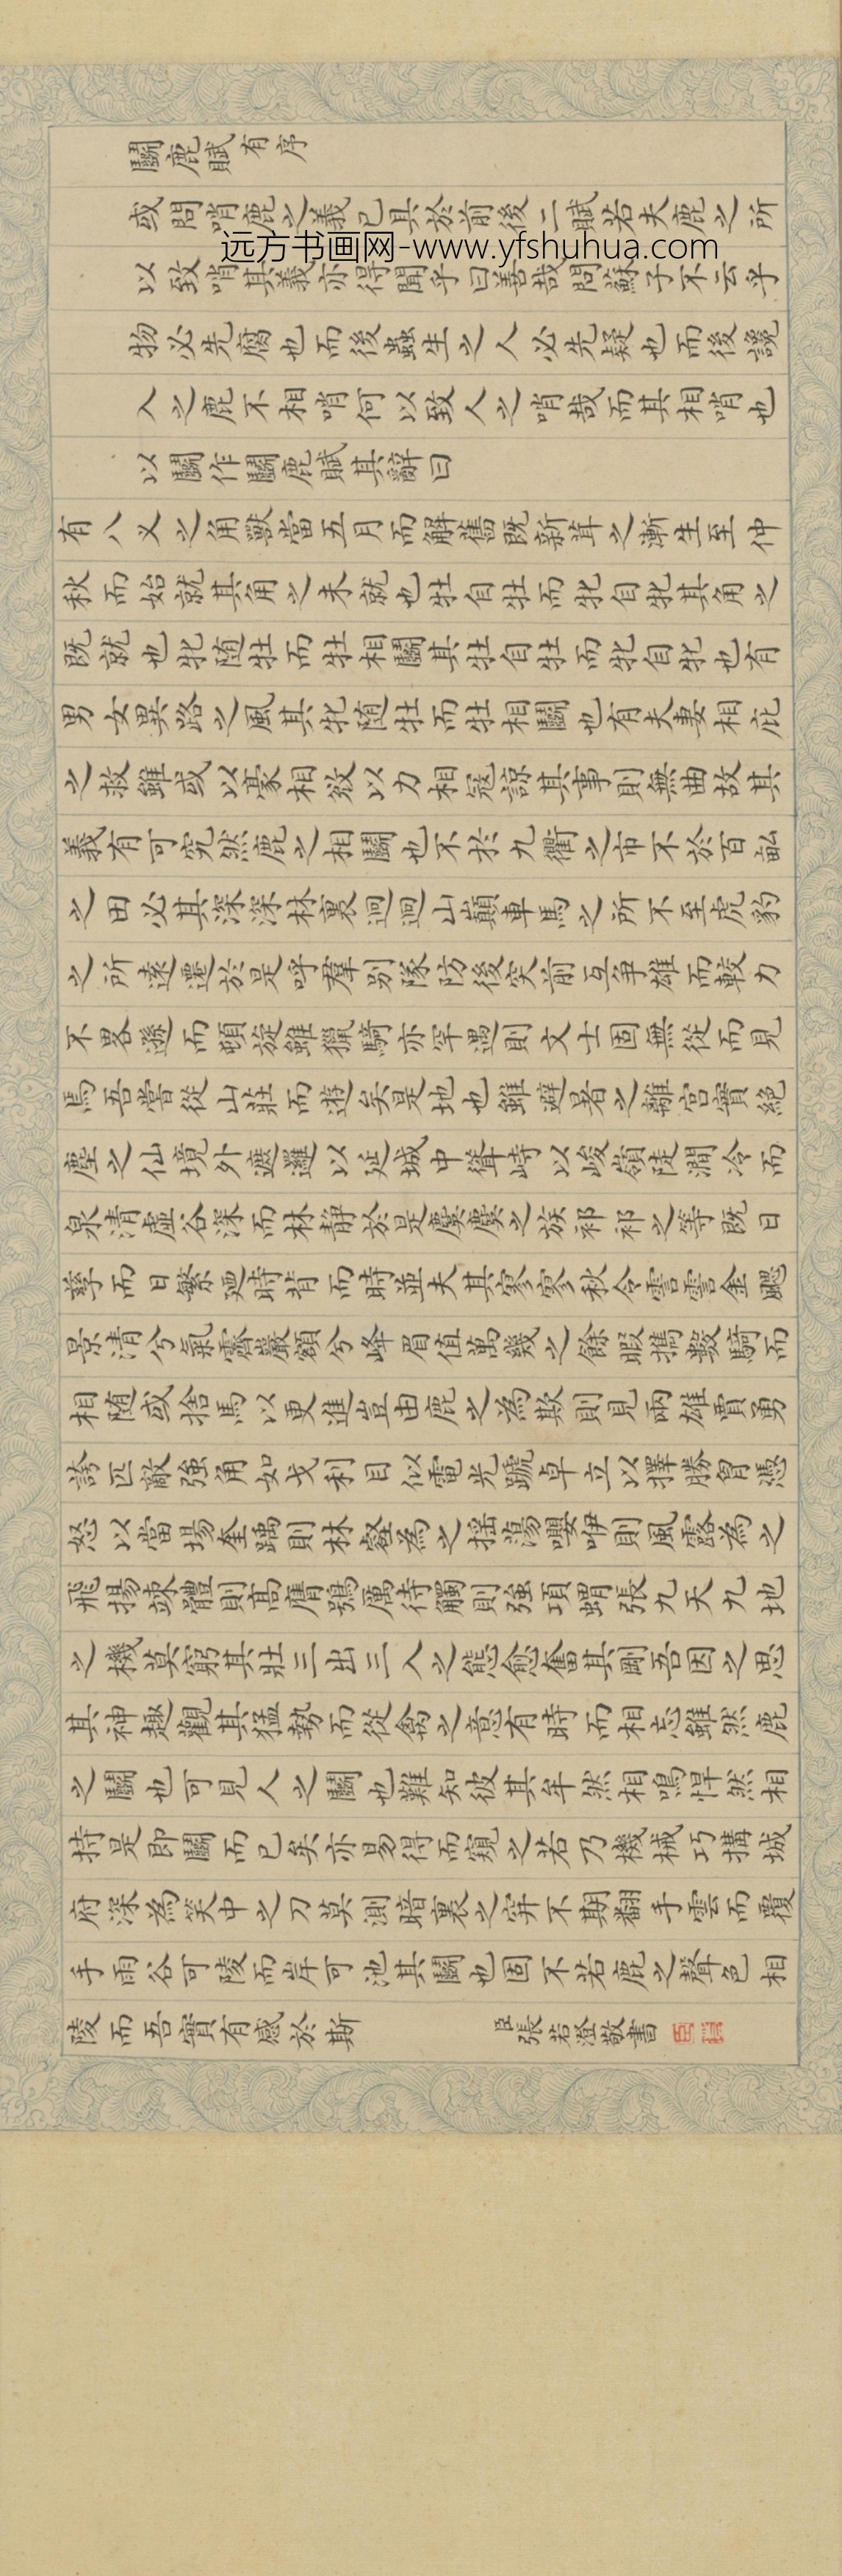 鬭鹿賦有序
或問哨鹿之義已具於前後二賦若夫鹿之所
远方书画网-www.yfshuhua.com
以致哨其義亦得聞乎曰善哉問蘇子不云乎
物必先腐也而後蟲生之人必先疑也而後讒
入之鹿不相哨何以致人之哨哉而其相哨也
以鬭作鬭鹿賦其辭曰
有八义之角獸當五月而解舊既新茸之漸生至仲
秋而始就其角之未就也牡自牡而牝自牝其角之
既就也牝随牡而牡相鬭其牡自牡而牝自牝也有
男女異路之風其牝随牡而牡相鬭也有夫妻相庇
之救雖或以豪相效以力相寇諒其事則無曲故其
義有可究然鹿之相鬭也不於九衢之市不於百畝
之田必其深深林裏迥迥山巔車馬之所不至虎豹
之所遠遷於是呼羣别隊防後突前互爭雄而較力
不畧遜而頓旋雖獵騎亦罕遇則文士固無從而見
焉吾嘗從山莊而遊矣是地也雖避暑之離宫實絶
塵之仙境外遮邐以延城中聳峙以峻嶺陡澗冷而
泉清虚谷深而林静於是麌麌之族祁祁之等既日
孳而日繁廼時背而時並夫其寥寥秋令霅霅金飇
景清兮氣霽巖額兮峰眉值萬幾之餘暇攜數騎而
相随或捨馬以更進豈由鹿之為欺則見兩雄賈勇
誇匹敵強角如戈利目似電光蹏卓立以擇勝胷憑
怒以當場奎踽則林壑為之揺蕩嚶咿則風露為之
飛揚竦體則髙膺鶚厲待觸則強項蝟張九天九地
之機莫窮其壯三出三入之態愈奮其剛吾因之思
其神趣觀其猛勢而從禽之意有時而相忘雖然鹿
之鬭也可見人之鬭也難知彼其牟然相鳴悍然相
持是即鬭而已矣亦易得而窺之若乃機械巧搆城
府深為笑中之刀莫測暗裏之穽不期翻手雲而覆
手雨谷可陵而岸可池其鬭也固不若鹿之聲色相
陵而吾實有感於斯
臣張若澄敬書